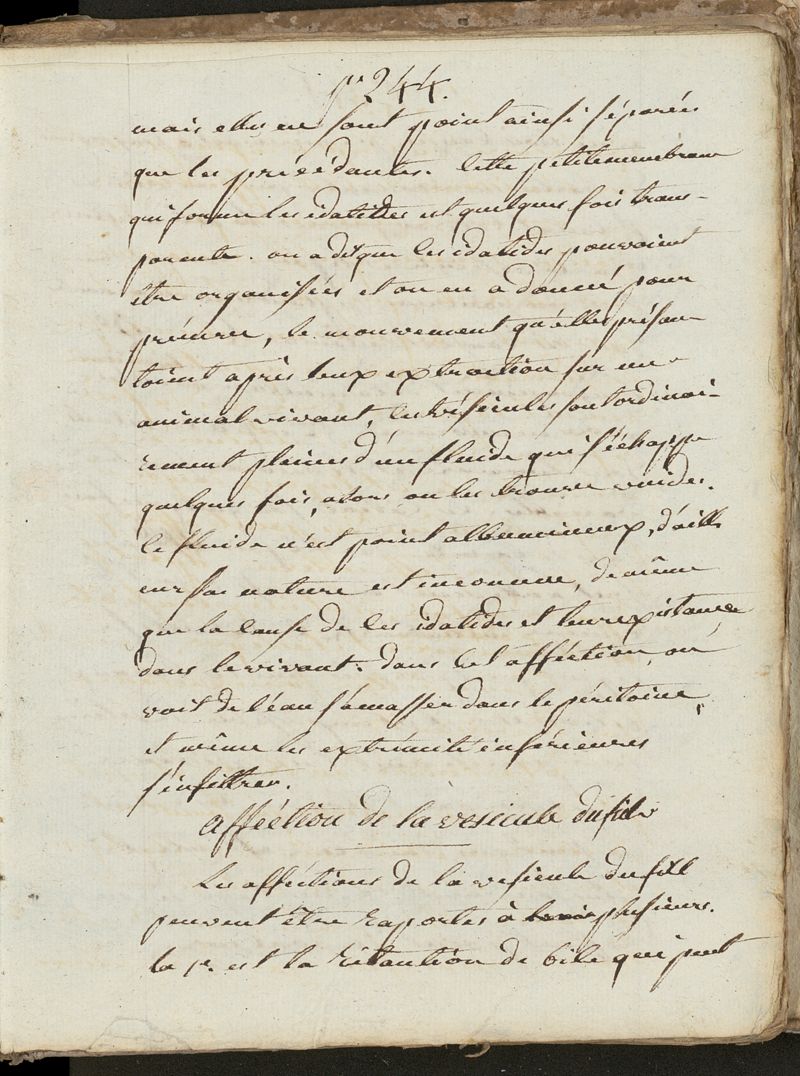 p. 244.
mais elles ne sont point ainsi séparées
que les précédantes. Cette petite membrane
qui forme les idatides est quelques fois trans-
parente. on a dit que les idatides pouvoient
être organisées et on en a donné pour
preuve, le mouvement qu'elles présen
toient après leux extraction sur un
animal vivant, les vésicules sont ordinai-
rement pleines d'un fluide qui s'échappe
quelques fois, alors on les trouve vuides.
le fluide n'est point albumineux, d'aill
eurs sa nature est inconnue, de même
que la cause de ces idatides et leur existance
dans le vivant. dans cet afféction, on
voit de l'éau s'amasser dans le péritoine,
et même les extrémité inférieures
s'infiltrer.
afféction de la vesicule du fiel
Les afféctions de la vesicule du fiel
peuvent être raportés à plusieurs.
la 1re. est la rétantion de bile qui peut